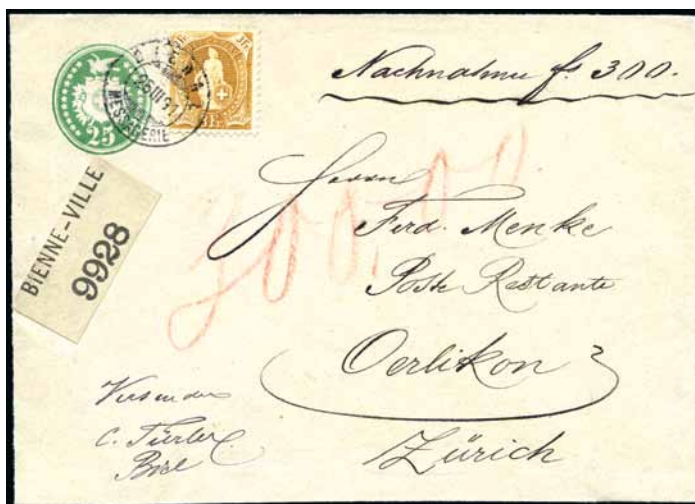 25
3 Fr.
25 III 91
MESSAGERIE
Nachnahme fs 300.-
BIENNE-VILLE
9928
300,00
Herrn
Ferd. Menke
Poste Restante
Oerlikon
Zürich
Versender
C. Türler
Biel